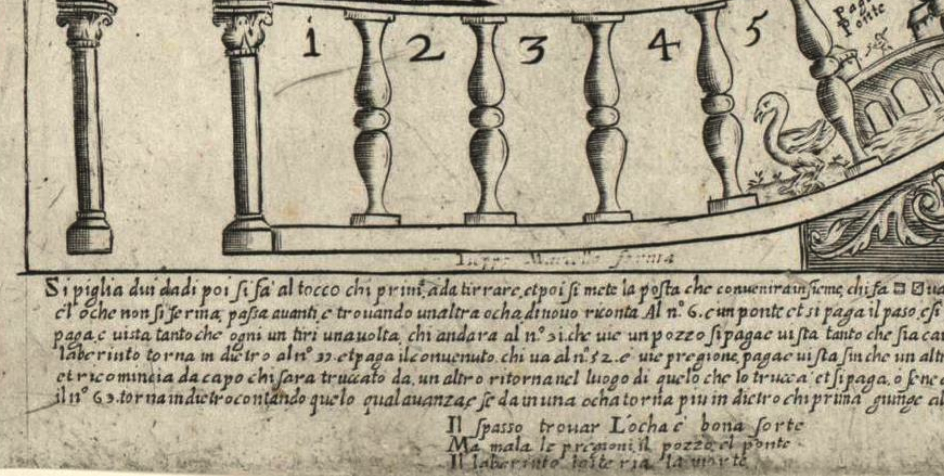 1 2 3 4 5
Ponte
Si piglia dui dadi poi si fa al tocco chi prim a da tirrare, et poi si mete la posta che convenira insieme, chi fa
e l'oche non si ferma, passa avanti, e trovando un altra ocha di novo riconta. Al nº. 6. e un ponte et si paga il paso, e si
paga, e vi sta, tanto che ogni un tiri una volta, chi andara al nº 31. che vie un pozzo si paga e vi sta tanto che sia
laberinto torna in dietro al nº 39. et paga il convenuto. chi va al nº 52. e vie pregione, paga e vi sta fin che un altr
et ricomincia da capo chi sara truccato da, un altro ritorna nel luogo di quelo che lo trucca et si paga, o
il nº 63. torna in dietro contando quelo qual avanza, e se da in una ocha torna piu in dietro chi prima giunge al
Il spasso trovar L'ocha e bona sorte
Ma mala le pregioni il pozzo, el ponte
Il laberinto la morte